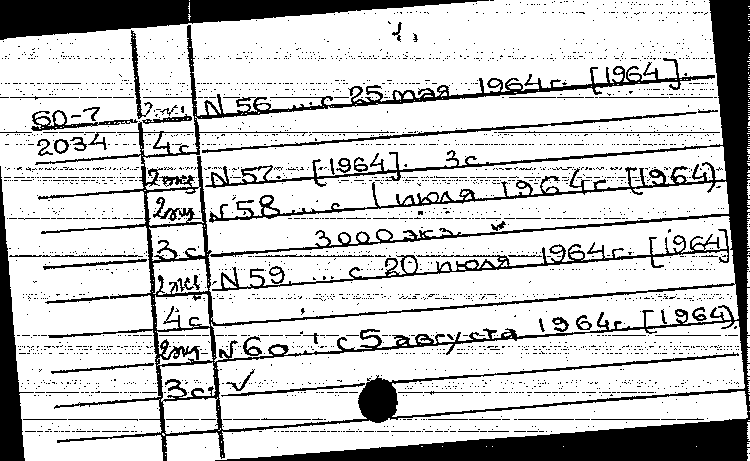 1.
60-7 2экз N 56 ... с 25 мая 1964 г. [1964].
2034 4 с.
2экз N 57. [1964]. 3 с.
2экз N 58 ... с 1 июля 1964 г. [1964)
3 с. 3000 экз.
2экз N 59. ... с 20 июля 1964 г. [1964]
4 с.
2экз N 60 ... с 5 августа 1964 г. [1964).
3 с. ✓